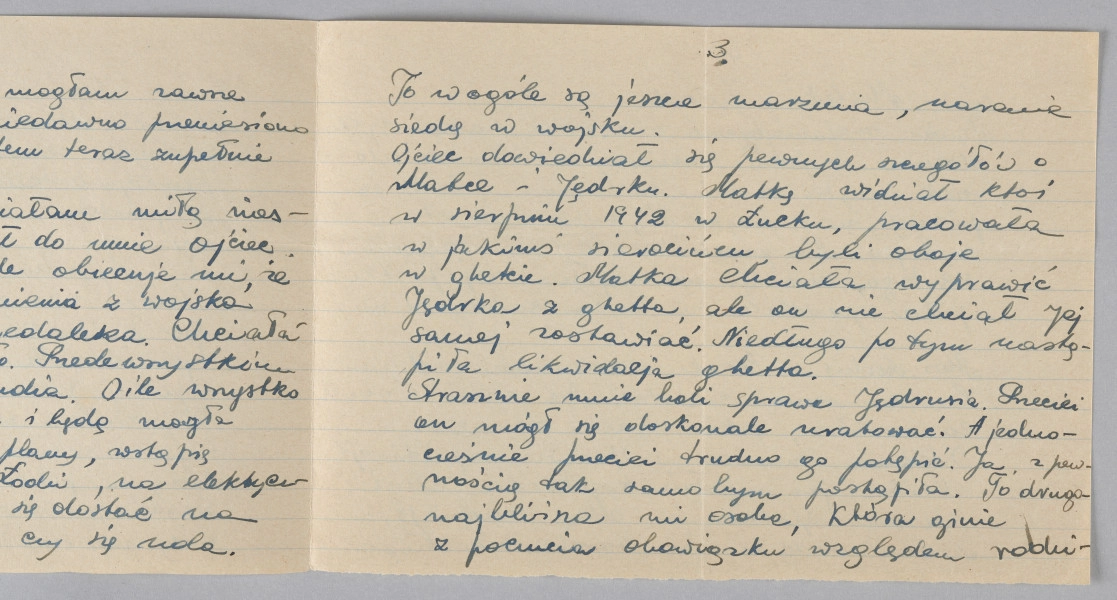 mogłam zawsze
iedawno przeniesiono
tem teraz zupełnie
iałam miłą nies-
ł do mnie ojciec.
le obiecuje mi, że
nienia z wojska
edaleka. Chciałá
o. Przedewszystkim
udia. O ile wszystko
i będę mogła
plany, wstąpię
Łodzi, na elektycz
się dostać na
czy się uda.
3.
To w ogóle są jeszcze marzenia, narazie
siedzę w wojsku.
Ojciec dowiedział się pewnych szczegółów o
Matce i Jędrku. Matkę widział ktoś
w sierpniu 1942 w Łucku, pracowała
w jakimś sierocińcu, byli oboje
w ghetcie. Matka chciała wyprawić
Jędrka z ghetta, ale on nie chciał Jej
samej zostawiać. Niedługo po tym nastą-
piła likwidacja ghetta.
Strasznie mnie boli sprawa Jędrusia. Przecież
on mógł się doskonale uratować. A jedno-
cześnie przecież trudno go potępić. Ja, z pew-
nością tak samo bym postąpiła. To druga
najbliższa mi osoba, która ginie
z poczucia obowiązku względem rodzi-